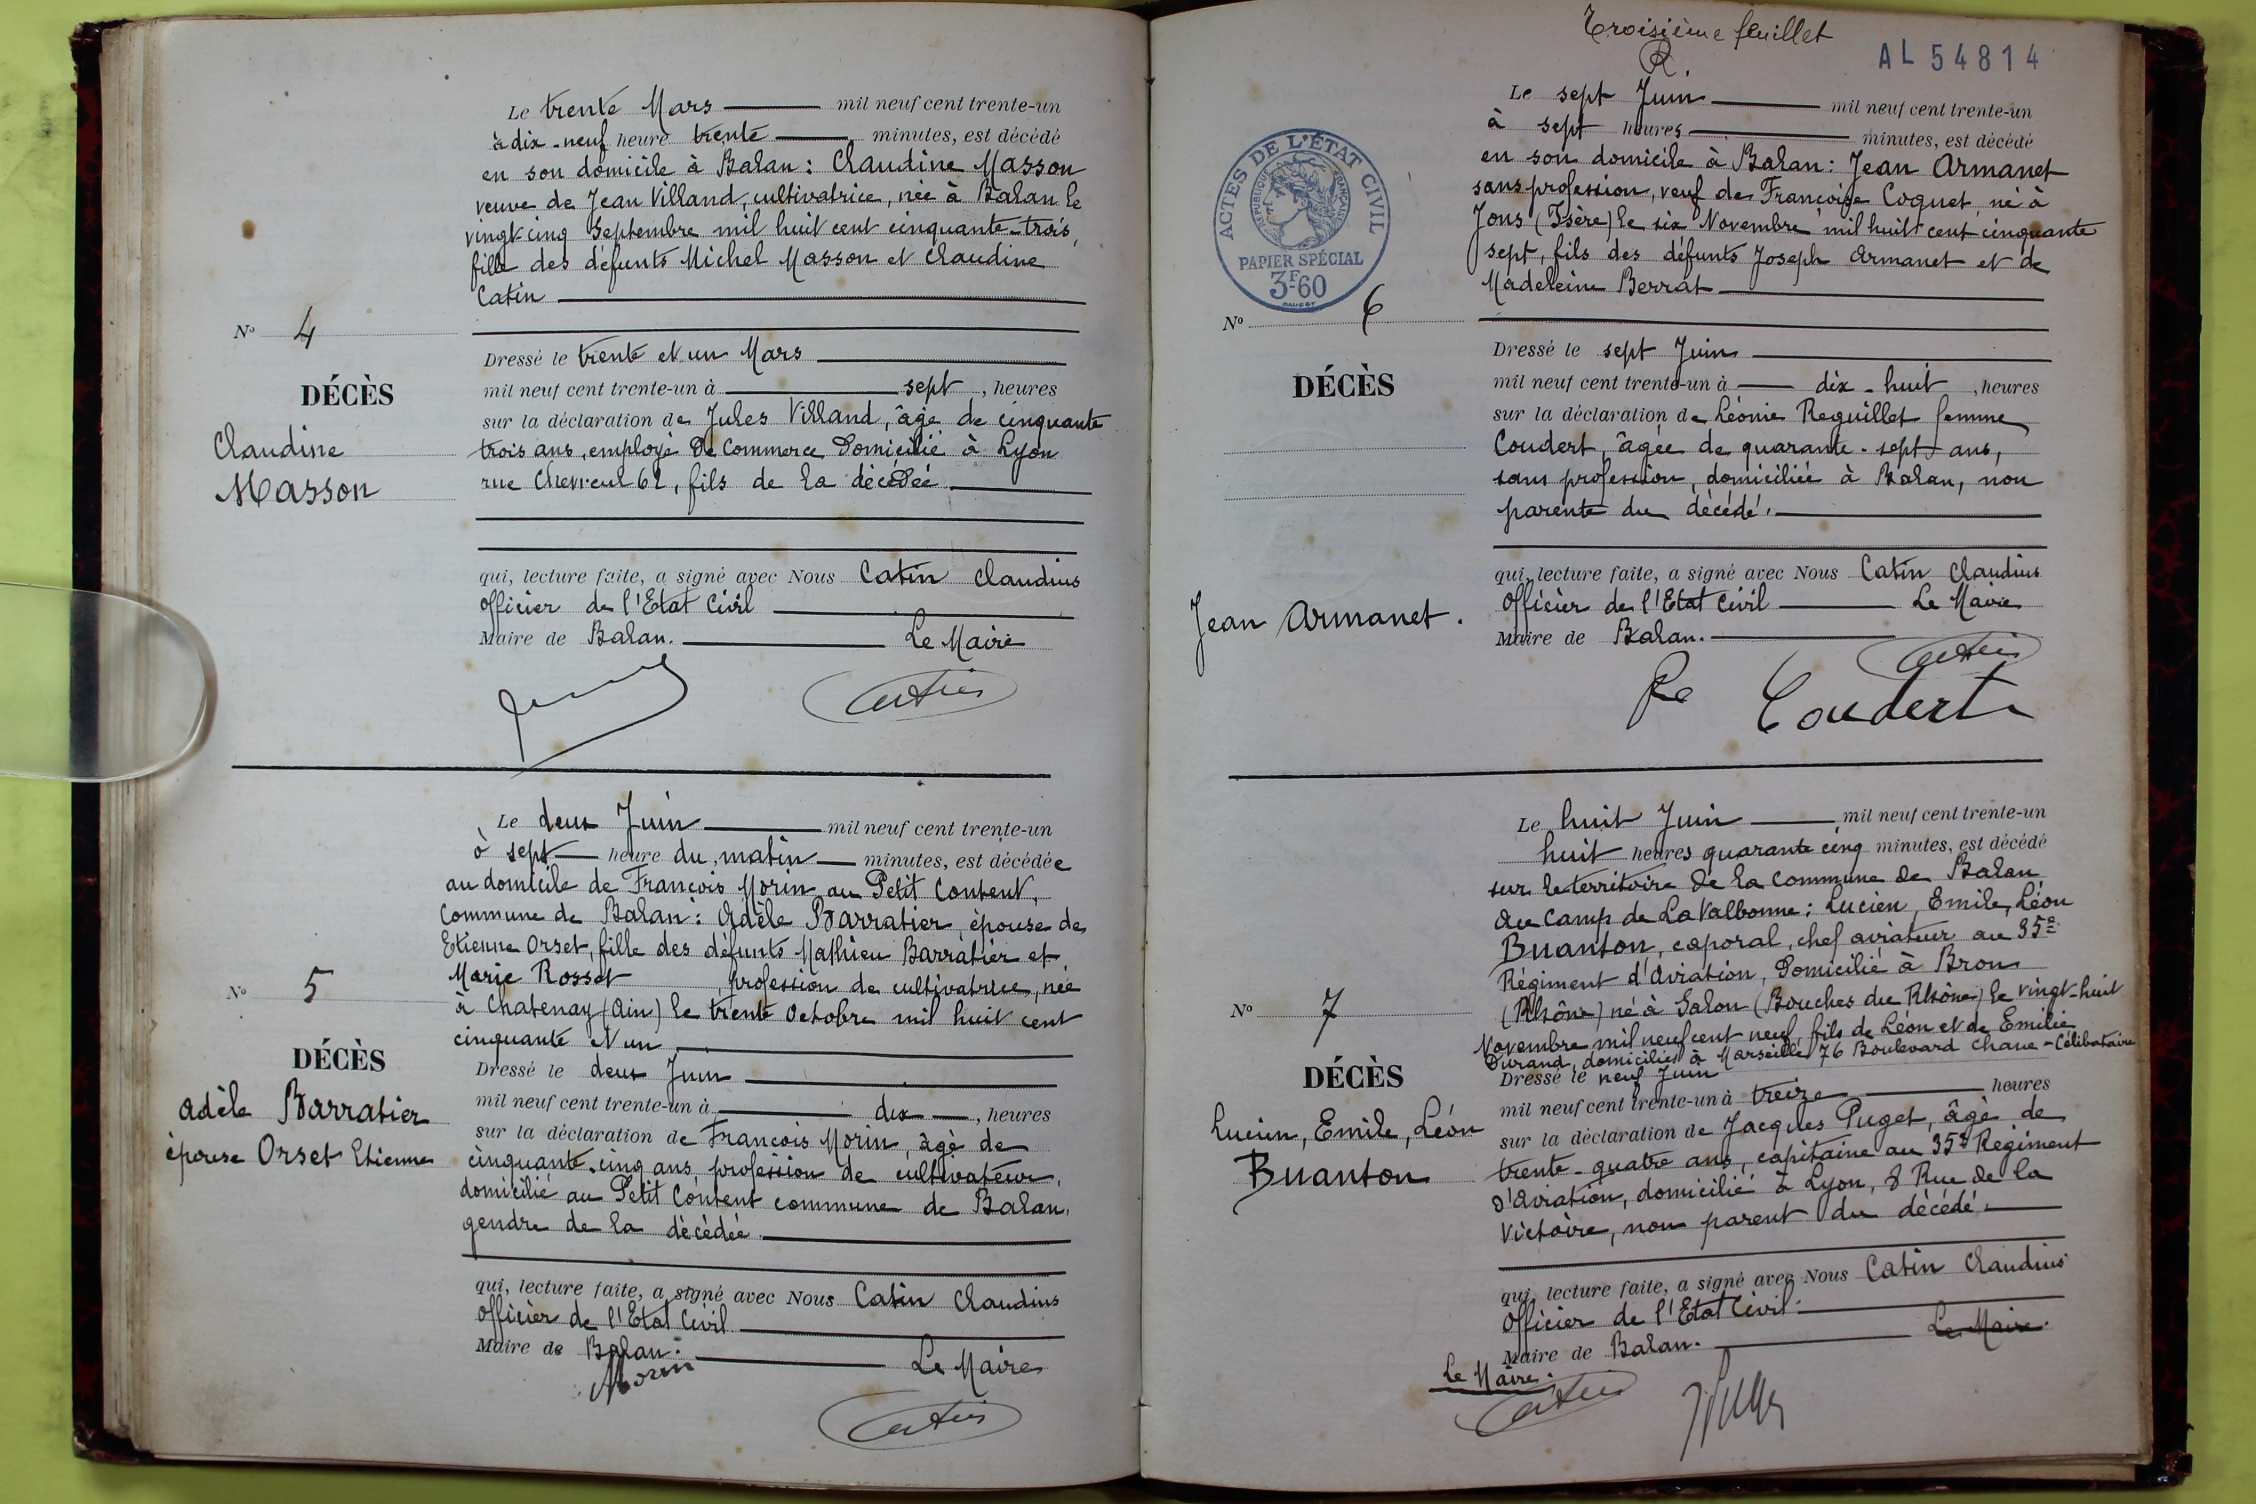 Le trente Mars mil neuf cent trente-un
à dix-neuf heure trente minutes, est décédé
en son domicile à Balan : Claudine Masson
veuve de Jean Villand, cultivatrice, née à Balan le
vingt cinq Septembre mil huit cent cinquante-trois,
fille des défunts Michel Masson et Claudine
Catin
No 4
DÉCÈS
Claudine
Masson
Dressé le trente et un Mars
mil neuf cent trente-un à sept, heures
sur la déclaration de Jules Villand, âgé de cinquante
trois ans, employé de Commerce domicilié à Lyon
rue Chevreul 62, fils de la décédée
qui, lecture faite, a signé avec Nous Catin Claudius
Officier de l'Etat Civil
Maire de Balan. Le Maire
Catin
Le deux Juin mil neuf cent trente-un
à sept heure du matin minutes, est décédée
au domicile de François Morin au Petit Content,
Commune de Balan : Adèle Barratier, épouse de
Etienne Orset, fille des défunts Mathieu Barratier et
Marie Rosset, profession de cultivatrice, née
à Chatenay (Ain) le trente Octobre mil huit cent
cinquante et un
No 5
DÉCÈS
Adèle Barratier
épouse Orset Etienne
Dressé le deux Juin
mil neuf cent trente-un à dix, heures
sur la déclaration de François Morin, âgé de
cinquante-cinq ans, profession de cultivateur,
domicilié au Petit Content commune de Balan,
gendre de la décédée
qui, lecture faite, a signé avec Nous Catin Claudius
Officier de l'Etat Civil
Maire de Balan. Le Maire
Morin
Catin
Troisième feuillet
AL 54814
ACTES DE L'ÉTAT CIVIL
RÉPUBLIQUE FRANÇAISE
PAPIER SPÉCIAL
3F60
Le sept Juin mil neuf cent trente-un
à sept heures minutes, est décédé
en son domicile à Balan : Jean Armanet
sans profession, veuf de Françoise Coquet, né à
Jons (Isère) le six Novembre mil huit cent cinquante
sept, fils des défunts Joseph Armanet et de
Madeleine Berrat
No 6
DÉCÈS
Jean Armanet.
Dressé le sept Juin
mil neuf cent trente-un à dix-huit, heures
sur la déclaration de Léonie Reguillet femme
Coudert, âgée de quarante-sept ans,
sans profession, domiciliée à Balan, non
parente du décédé.
qui, lecture faite, a signé avec Nous Catin Claudius
Officier de l'Etat Civil Le Maire
Maire de Balan.
Catin
Coudert
Le huit Juin mil neuf cent trente-un
huit heures quarante cinq minutes, est décédé
sur le territoire de la commune de Balan
au Camp de La Valbonne : Lucien, Emile, Léon
Buanton, caporal, chef aviateur au 35e
Régiment d'Aviation, domicilié à Bron
(Rhône) né à Salon (Bouches du Rhône) le vingt-huit
Novembre mil neuf cent neuf, fils de Léon et de Emilie
Durand, domiciliés à Marseille, 76 Boulevard Chave - Célibataire
No 7
DÉCÈS
Lucien, Emile, Léon
Buanton
Dressé le neuf Juin
mil neuf cent trente-un à treize heures
sur la déclaration de Jacques Puget, âgé de
trente-quatre ans, capitaine au 35e Régiment
d'Aviation, domicilié à Lyon, 8 Rue de la
Victoire, non parent du décédé.
qui, lecture faite, a signé avec Nous Catin Claudius
Officier de l'Etat Civil.
Maire de Balan. Le Maire.
Le Maire.
Catin